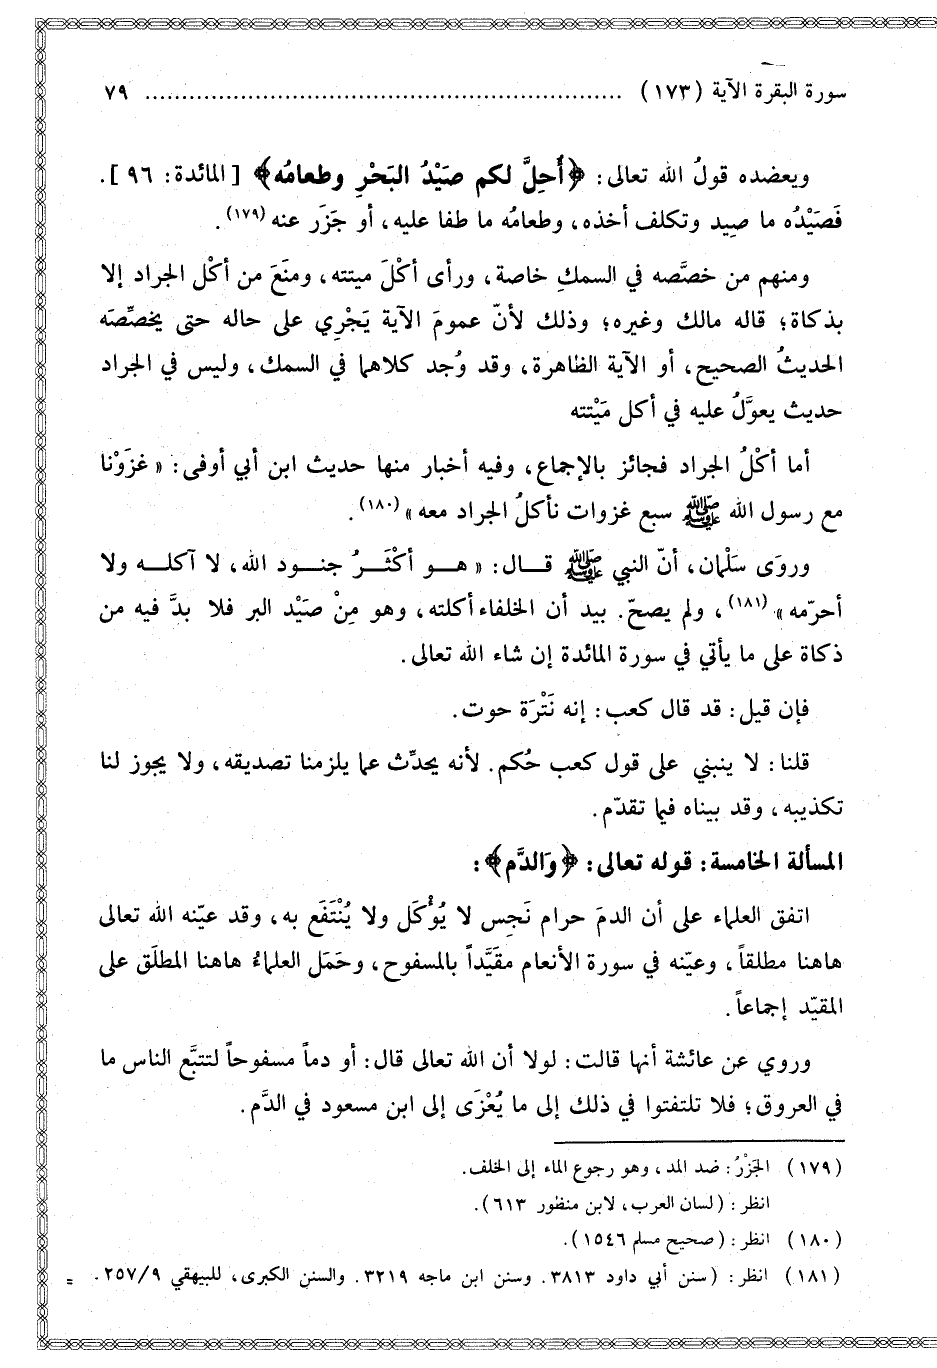 سورة البقرة الآية (١٧٣) ................................................................ ٧٩
ويعضده قولُ الله تعالى: ﴿أُحِلَّ لكم صَيْدُ البَحْرِ وطعامُه﴾ [المائدة: ٩٦].
فَصَيْدُه ما صِيد وتكلف أخذه، وطعامُه ما طفا عليه، أو جَزَر عنه(١٧٩).
ومنهم من خصَّصه في السمكِ خاصة، ورأى أكْلَ ميتته، ومنَعَ من أكْل الجراد إلا
بذكاة؛ قاله مالك وغيره؛ وذلك لأنّ عمومَ الآية يَجْرِي على حاله حتى يخصِّصَه
الحديثُ الصحيح، أو الآية الظاهرة، وقد وُجد كلاهما في السمك، وليس في الجراد
حديث يعوَّلُ عليه في أكل مَيْتته
أما أكْلُ الجراد فجائز بالإجماع، وفيه أخبار منها حديث ابن أبي أوفى: «غزَوْنا
مع رسول الله ﷺ سبع غزوات نأكلُ الجراد معه»(١٨٠).
وروَى سَلْمان، أنّ النبي ﷺ قـال: «هـو أكْثَـرُ جنـود الله، لا آكلـه ولا
أحرّمه»(١٨١)، ولم يصحّ. بيد أن الخلفاء أكلته، وهو مِنْ صَيْد البر فلا بدَّ فيه من
ذكاة على ما يأتي في سورة المائدة إن شاء الله تعالى.
فإن قيل: قد قال كعب: إنه نَثْرَة حوت.
قلنا: لا ينبني على قول كعب حُكم. لأنه يحدِّث عما يلزمنا تصديقه، ولا يجوز لنا
تكذيبه، وقد بيناه فيما تقدّم.
المسألة الخامسة: قوله تعالى: ﴿وَالدَّم﴾:
اتفق العلماء على أن الدمَ حرام نَجِس لا يُؤْكَل ولا يُنْتَفَع به، وقد عيّنه الله تعالى
هاهنا مطلقاً، وعيّنه في سورة الأنعام مقيَّداً بالمسفوح، وحَمَل العلماءُ هاهنا المطلَق على
المقيّد إجماعاً.
وروي عن عائشة أنها قالت: لولا أن الله تعالى قال: أو دماً مسفوحاً لتتبَّع الناس ما
في العروق؛ فلا تلتفتوا في ذلك إلى ما يُعْزَى إلى ابن مسعود في الدَّم.
(١٧٩) الجَزْرُ: ضد المد، وهو رجوع الماء إلى الخلف.
انظر: (لسان العرب، لابن منظور ٦١٣).
(١٨٠) انظر: (صحيح مسلم ١٥٤٦).
(١٨١) انظر: (سنن أبي داود ٣٨١٣. وسنن ابن ماجه ٣٢١٩. والسنن الكبرى، للبيهقي ٢٥٧/٩. =